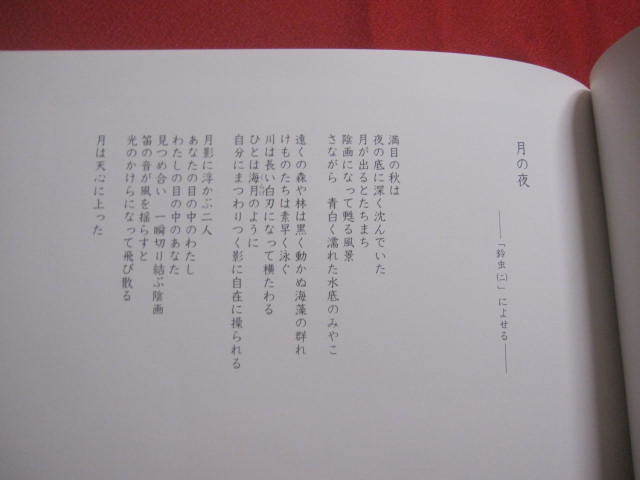 月の夜
――「鈴虫(二)」によせる――
満目の秋は
夜の底に深く沈んでいた
月が出るとたちまち
陰画になって甦る風景
さながら　青白く濡れた水底のみやこ
遠くの森や林は黒く動かぬ海藻の群れ
けものたちは素早く泳ぐ
川は長い白刃になって横たわる
ひとは海月のように
自分にまつわりつく影に自在に操られる
月影に浮かぶ二人
あなたの目の中のわたし
わたしの目の中のあなた
見つめ合い　一瞬切り結ぶ陰画
笛の音が風を揺らすと
光のかけらになって飛び散る
月は天心に上った